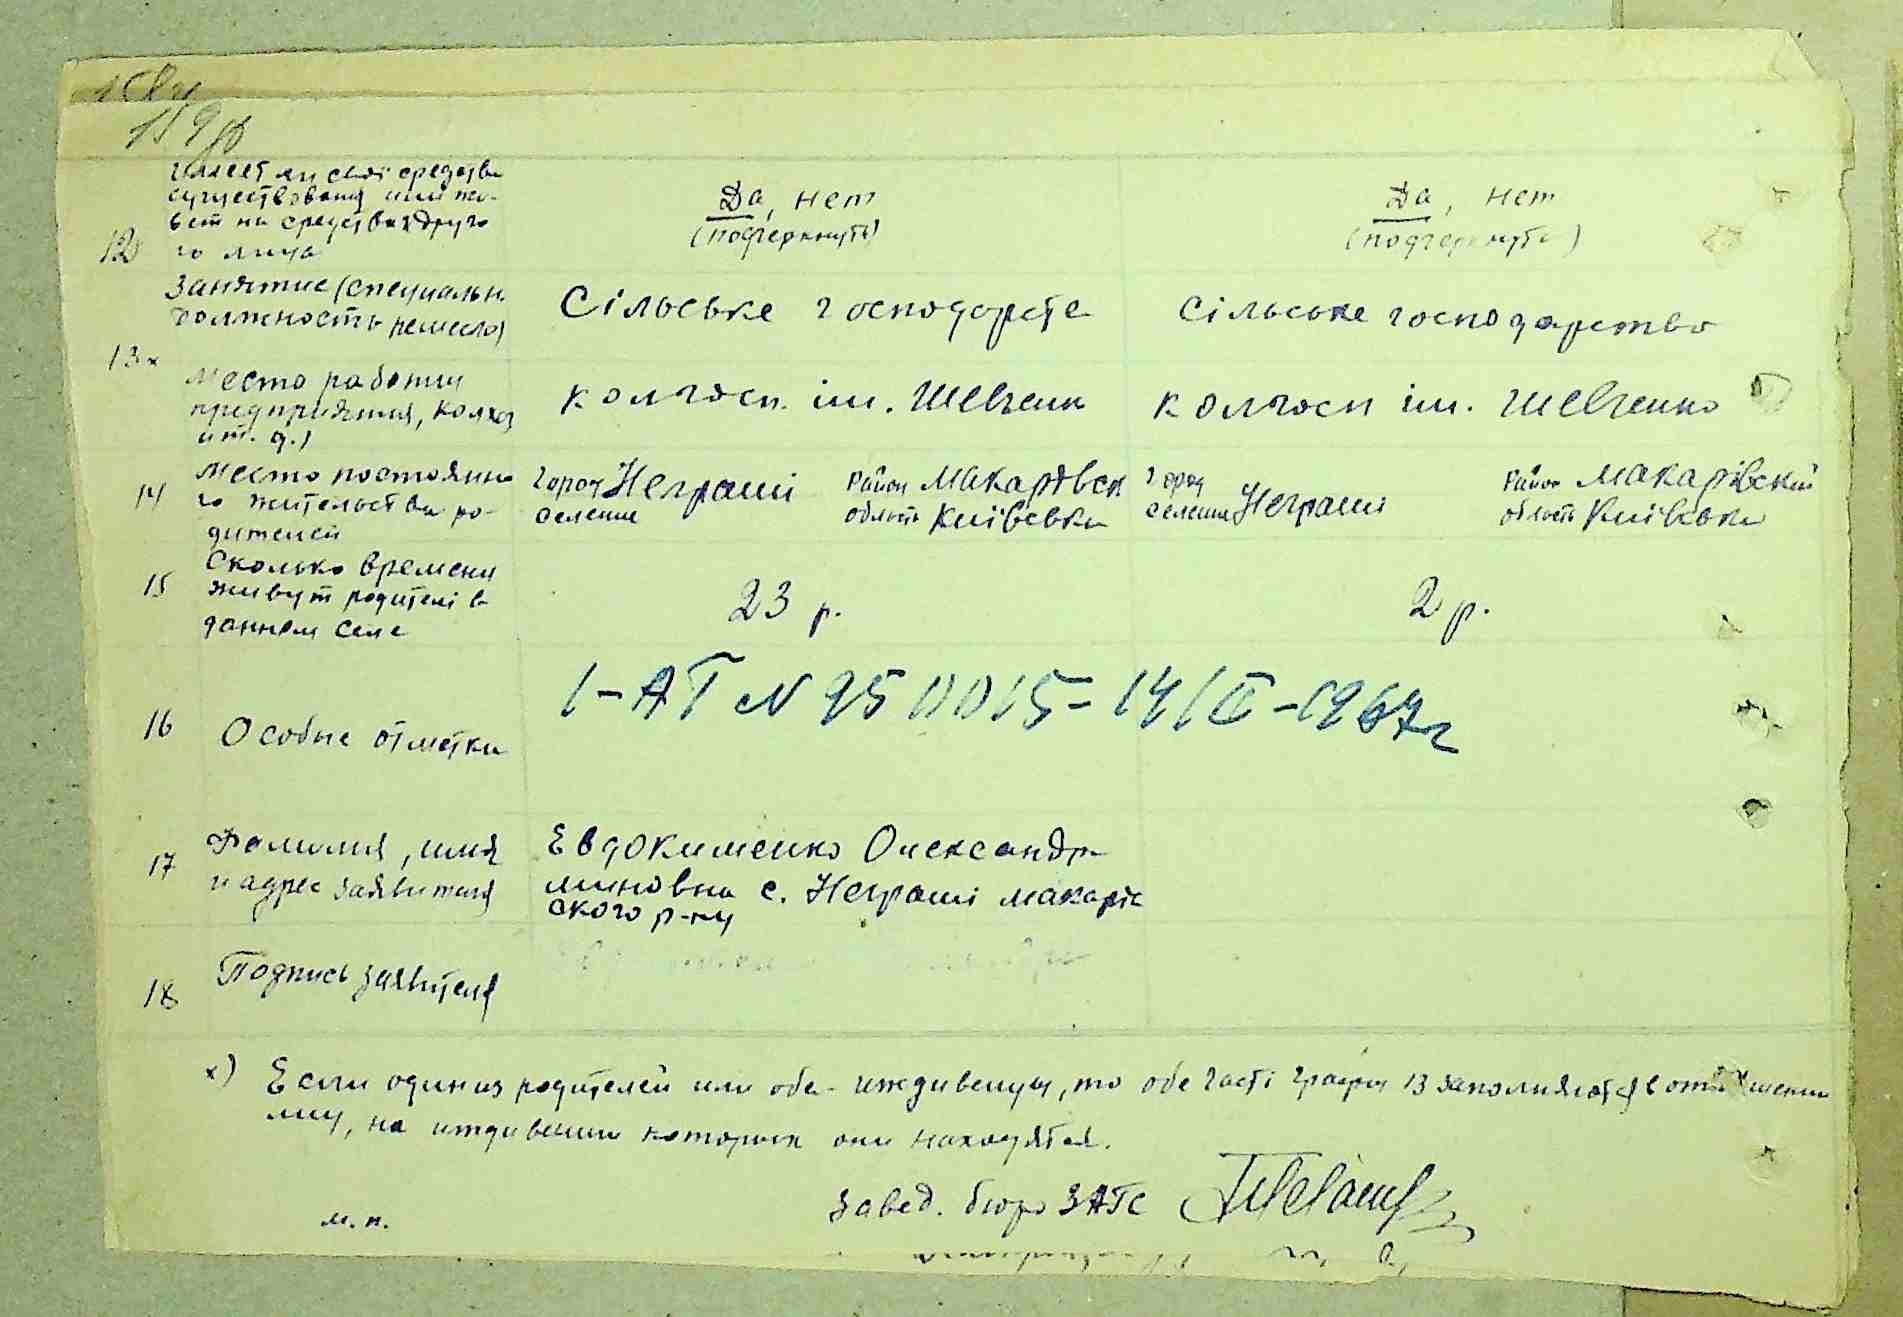 159
12
имеет ли свої средства
существования или жи-
вет на средствах друго
го лица
Да, нет
(подчеркнуть)
Да, нет
(подчеркнути)
13х
Занятие (специальн.
должность ремесло)
Сільське господарсте
Сільське господарство
место работи
предприятия, колхоз
и т. д.)
колгосп. ім. Шевченк
колгосп ім. Шевченко
14
место постоянно
го жительства ро-
дителей
город Неграші
селение
район Макарівск
область Київська
город
селение Неграші
район Макарівский
область Київска
15
Сколько времени
живут родителі в
данном селе
23 р.
2 р.
16
Особые отметки
1-АТ N 9511015 = 14/II-1967г
17
Фамилия, имя
и адрес заявителя
Евдокименко Олександр
миновна с. Неграші макарів
ского р-ну
18
Подпись заявителя
х) Если один из родителей или оба - иждивенцы, то обе часті графы 13 заполняются в отношении
лиц, на иждивении которых они находятся.
м. п.
Завед. бюро ЗАГС